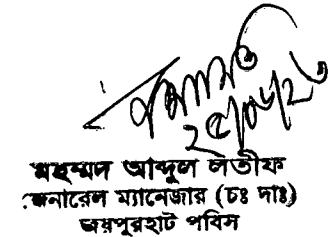 মহম্মদ আব্দুল লতীফ
জেনারেল ম্যানেজার (চঃ দাঃ)
জয়পুরহাট পবিস